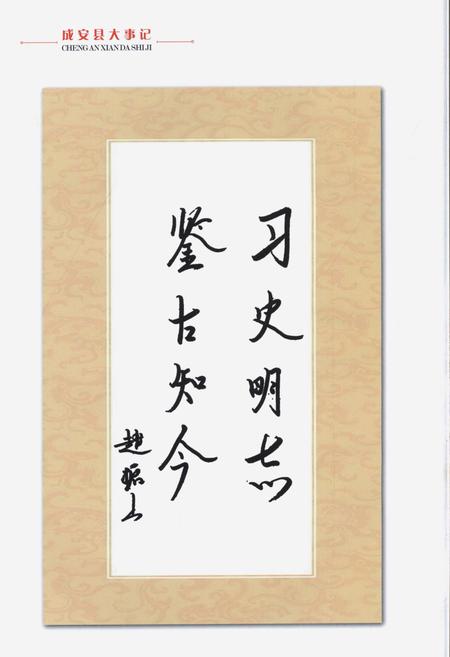 成安县大事记
CHENG AN XIAN DA SHI JI
习史明志
鉴古知今
赵振山